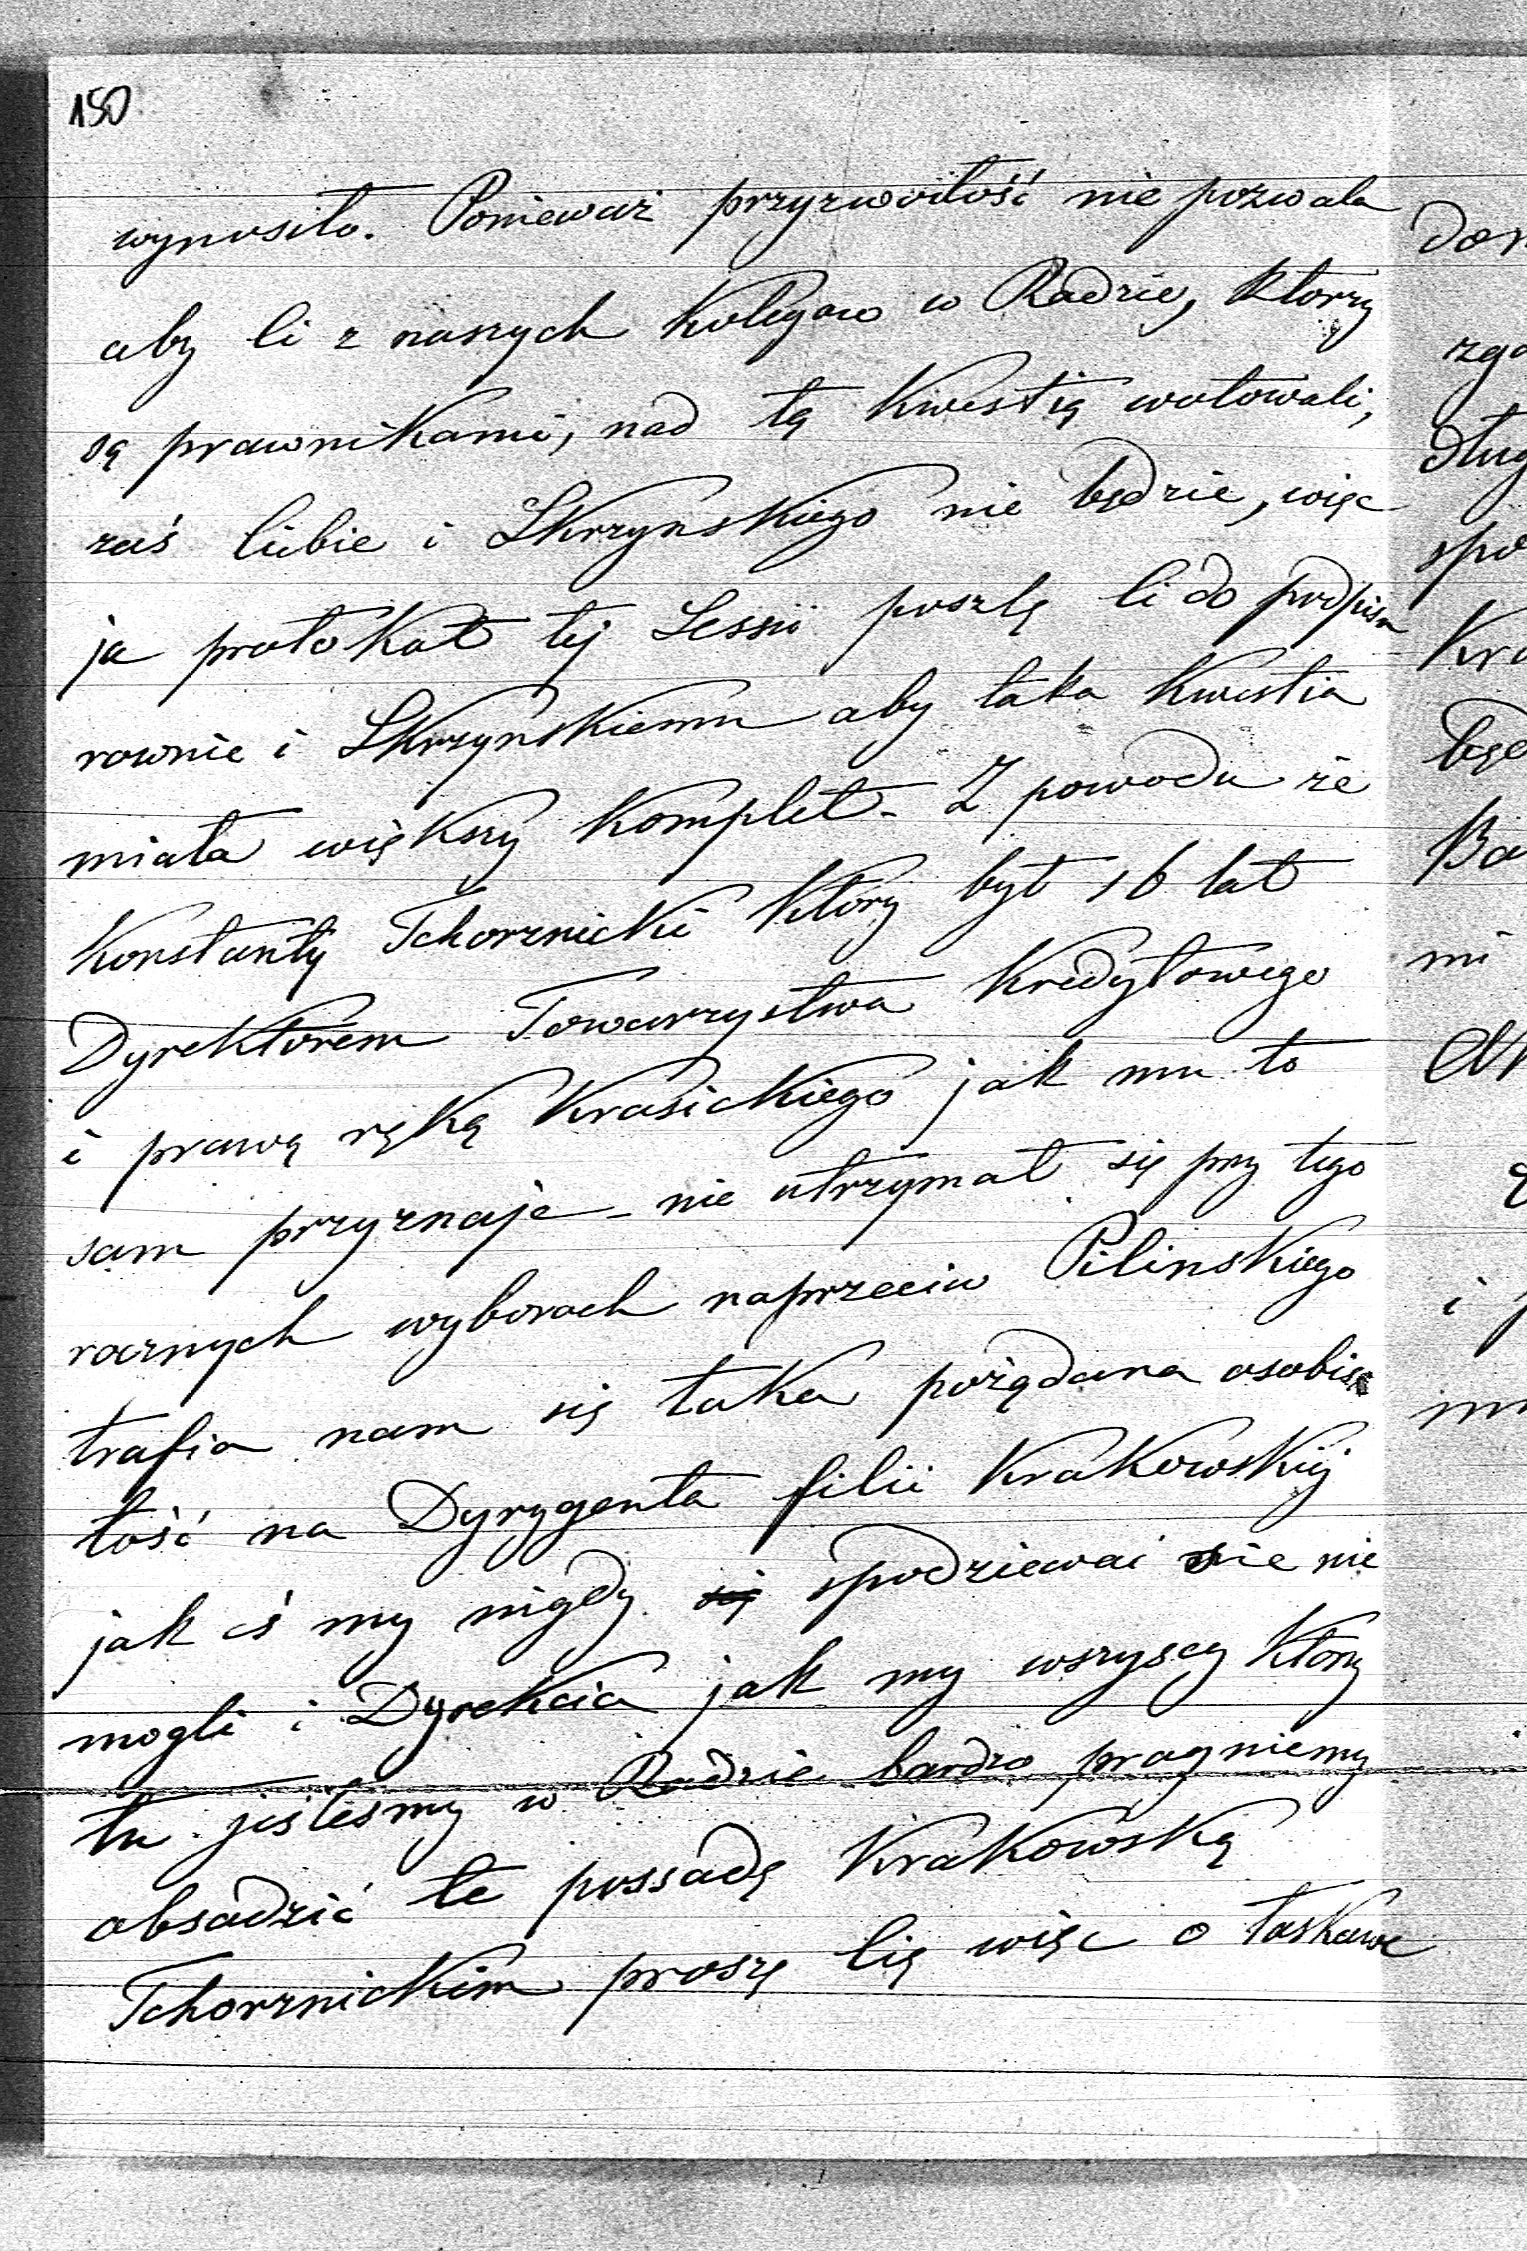 150
wynosiło. Ponieważ przyzwoitość nie pozwala
aby li z naszych Kolegow w Radzie, Ktorzy
są prawnikami, nad tą Kwestią wotowali,
zaś Ciebie i Skrzynskiego nie będzie, więc
ja protokoł tej Sessii poszlę Ci do podpisu
rownie i Skrzyńskiemu aby taka Kwestia
miała większy Komplet. Z powodu że
Konstanty Tchorznicki Który był 16 lat
Dyrektorem Towarzystwa Kredytowego
i prawą ręką Krasickiego jak mu to
sam przyznaje - nie utrzymał się przy tego
rocznych wyborach naprzeciw Pilinskiego
trafia nam się taka pożądana osobis
tość na Dyrygenta filii Krakowskiéj
jak eś my nigdy się spodziewać sie nie
mogli i Dyrekcia jak my wszyscy Ktorzy
tu jesteśmy w Radzie bardzo pragniemy
obsadzić te possadę Krakowską
Tchorznickim proszę Cię więc o łaskawe